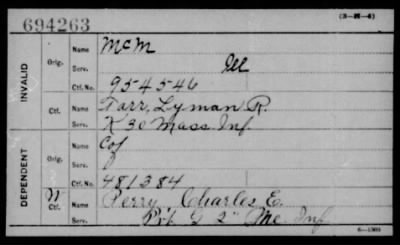 694263
(3—M—6)
INVALID
Orig.
Name McM
Serv. Ill
Ctf. No. 954546
Ctf.
Name Farr, Lyman R.
Serv. K 30 Mass. Inf.
DEPENDENT
Orig.
Name Cof
Serv.
Ctf. No. 481384
W
Ctf.
Name Perry, Charles E.
Serv. Pvt G 2" Me. Inf